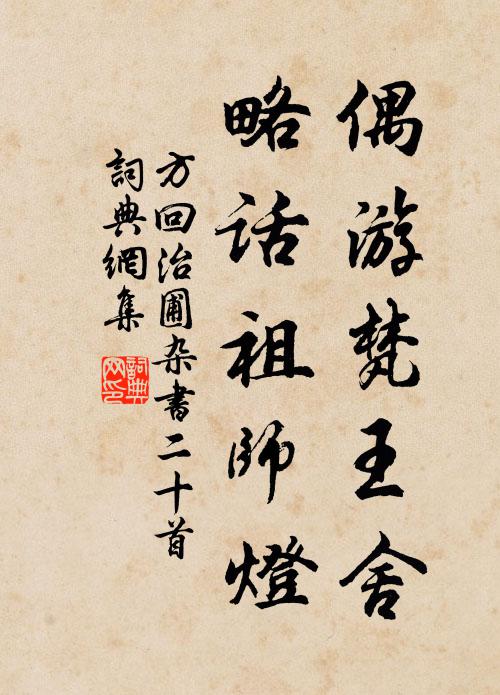 偶游梵王舍
略话祖師燈
方回治圃杂書二十首
詞典網集
詞典网印